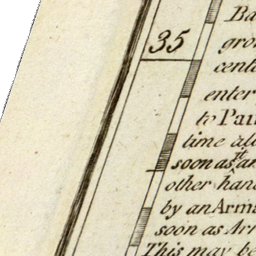 35
Ba
gro
centi
enter
to Pau
time alo
soon as, an
other hand
by an Arm
soon as Arr
This may be